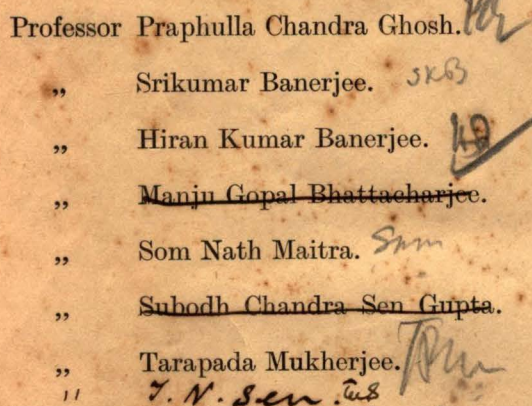 Professor Praphulla Chandra Ghosh.
„ Srikumar Banerjee. SKB
„ Hiran Kumar Banerjee.
„ Manju Gopal Bhattacharjee.
„ Som Nath Maitra. Snm
„ Subodh Chandra Sen Gupta.
„ Tarapada Mukherjee.
" T. N. Sen.